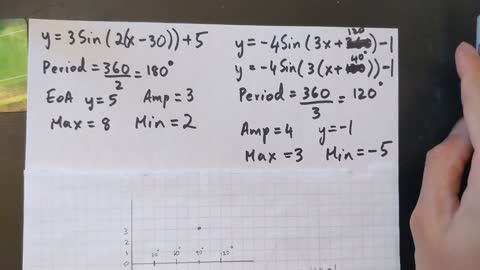 y = 3 Sin (2(x - 30)) + 5
Period = 360/2 = 180°
EoA y = 5 Amp = 3
Max = 8 Min = 2
y = -4 Sin (3x + 120) - 1
y = -4 Sin (3(x + 40°)) - 1
Period = 360/3 = 120°
Amp = 4 y = -1
Max = 3 Min = -5
3
2
1
0
60°
90°
120°